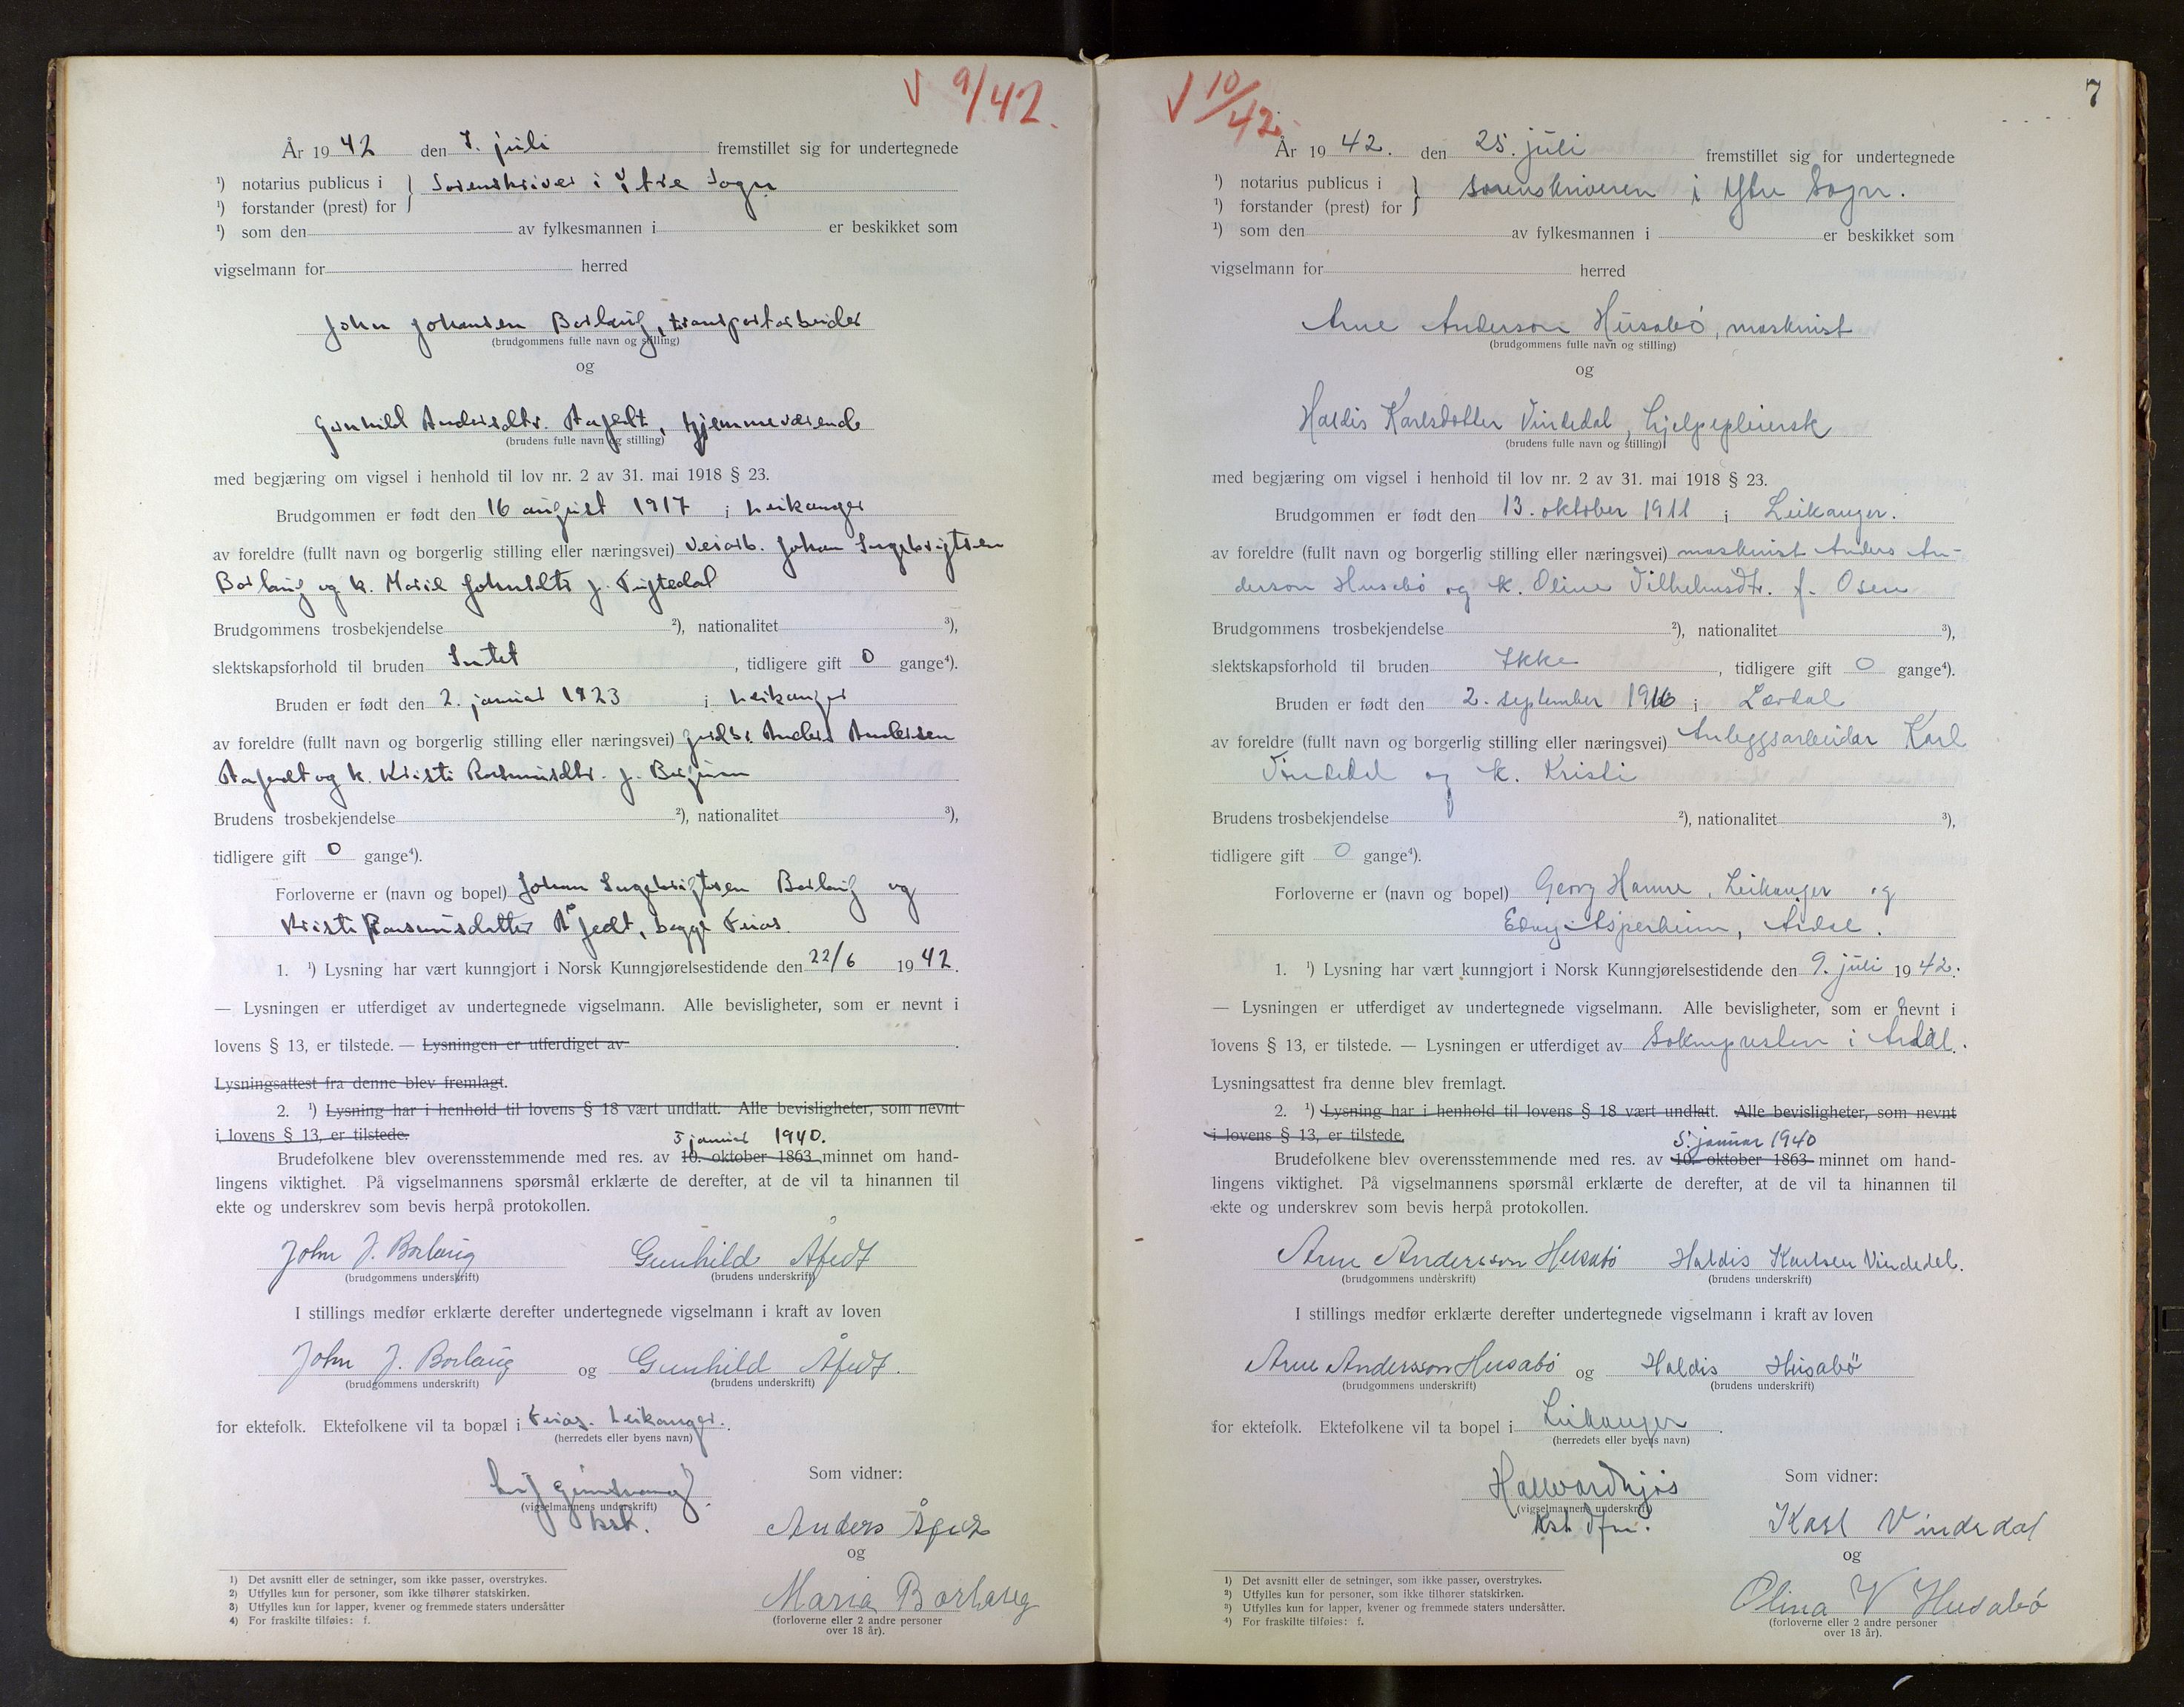 √ 9/42.
År 19 42 den 7. juli fremstillet sig for undertegnede
¹) notarius publicus i } Sorenskriver i Ytre Sogn
¹) forstander (prest) for
¹) som den av fylkesmannen i er beskikket som
vigselmann for herred
John Johansen Borlaug, transportarbeider
(brudgommens fulle navn og stilling)
og
Gunhild Andersdtr. Aafedt, hjemmeværende
(brudens fulle navn og stilling)
med begjæring om vigsel i henhold til lov nr. 2 av 31. mai 1918 § 23.
Brudgommen er født den 16 august 1917 i Leikanger
av foreldre (fullt navn og borgerlig stilling eller næringsvei) veiarb. Johan Ingebrigtsen
Borlaug og k. Marie Johnsdtr f.
Brudgommens trosbekjendelse ²), nationalitet ³),
slektskapsforhold til bruden Intet, tidligere gift 0 gange⁴).
Bruden er født den 2. januar 1923 i Leikanger
av foreldre (fullt navn og borgerlig stilling eller næringsvei) grdbr. Anders Andersen
Aafedt og k. Kristi Rasmusdtr. f. Bergum
Brudens trosbekjendelse ²), nationalitet ³),
tidligere gift 0 gange⁴).
Forloverne er (navn og bopel) Johan Ingebrigtsen Borlaug og
Kristi Rasmusdatter Åfedt, begge Feios.
1. ¹) Lysning har vært kunngjort i Norsk Kunngjørelsestidende den 22/6 19 42.
— Lysningen er utferdiget av undertegnede vigselmann. Alle bevisligheter, som er nevnt i
lovens § 13, er tilstede. — Lysningen er utferdiget av .
Lysningsattest fra denne blev fremlagt.
2. ¹) Lysning har i henhold til lovens § 18 vært undlatt. Alle bevisligheter, som nevnt
i lovens § 13, er tilstede.
5 januar 1940.
Brudefolkene blev overensstemmende med res. av 10. oktober 1863 minnet om hand-
lingens viktighet. På vigselmannens spørsmål erklærte de derefter, at de vil ta hinannen til
ekte og underskrev som bevis herpå protokollen.
John J. Borlaug Gunhild Åfedt
(brudgommens underskrift) (brudens underskrift)
I stillings medfør erklærte derefter undertegnede vigselmann i kraft av loven
John J. Borlaug og Gunhild Åfedt.
(brudgommens underskrift) (brudens underskrift)
for ektefolk. Ektefolkene vil ta bopæl i Feios. Leikanger.
(herredets eller byens navn)
Som vidner:
(vigselmannens underskrift)
kst.
Anders Åfedt
og
Maria Borlaug
(forloverne eller 2 andre personer
over 18 år).
1) Det avsnitt eller de setninger, som ikke passer, overstrykes.
2) Utfylles kun for personer, som ikke tilhører statskirken.
3) Utfylles kun for lapper, kvener og fremmede staters undersåtter
4) For fraskilte tilføies: f.
7
√ 10/42.
År 19 42. den 25. juli fremstillet sig for undertegnede
¹) notarius publicus i } sorenskriveren i Ytre Sogn.
¹) forstander (prest) for
¹) som den av fylkesmannen i er beskikket som
vigselmann for herred
Arne Anderson Husabø, maskinist
(brudgommens fulle navn og stilling)
og
Haldis Karlsdotter Vindedal, hjelpepleiersk
(brudens fulle navn og stilling)
med begjæring om vigsel i henhold til lov nr. 2 av 31. mai 1918 § 23.
Brudgommen er født den 13. oktober 1911 i Leikanger.
av foreldre (fullt navn og borgerlig stilling eller næringsvei) maskinist Anders An-
derson Husebø og k. Oline Vilhelmsdtr. f. Osen
Brudgommens trosbekjendelse ²), nationalitet ³),
slektskapsforhold til bruden Ikke, tidligere gift 0 gange⁴).
Bruden er født den 2. september 1916 i Lærdal
av foreldre (fullt navn og borgerlig stilling eller næringsvei) Anleggsarbeidar Karl
Vindedal og k. Kristi
Brudens trosbekjendelse ²), nationalitet ³),
tidligere gift 0 gange⁴).
Forloverne er (navn og bopel) Georg Hamre, Leikanger og
Edny Asperheim, Årdal.
1. ¹) Lysning har vært kunngjort i Norsk Kunngjørelsestidende den 9. juli 19 42.
— Lysningen er utferdiget av undertegnede vigselmann. Alle bevisligheter, som er nevnt i
lovens § 13, er tilstede. — Lysningen er utferdiget av Soknepresten i Årdal.
Lysningsattest fra denne blev fremlagt.
2. ¹) Lysning har i henhold til lovens § 18 vært undlatt. Alle bevisligheter, som nevnt
i lovens § 13, er tilstede.
5. januar 1940
Brudefolkene blev overensstemmende med res. av 10. oktober 1863 minnet om hand-
lingens viktighet. På vigselmannens spørsmål erklærte de derefter, at de vil ta hinannen til
ekte og underskrev som bevis herpå protokollen.
Arne Andersson Husabø Haldis Karlsen Vindedal.
(brudgommens underskrift) (brudens underskrift)
I stillings medfør erklærte derefter undertegnede vigselmann i kraft av loven
Arne Andersson Husabø og Haldis Husabø
(brudgommens underskrift) (brudens underskrift)
for ektefolk. Ektefolkene vil ta bopel i Leikanger.
(herredets eller byens navn)
Som vidner:
(vigselmannens underskrift)
kst dfm.
Karl Vindedal
og
Olina V Husabø
(forloverne eller 2 andre personer
over 18 år).
1) Det avsnitt eller de setninger, som ikke passer, overstrykes.
2) Utfylles kun for personer, som ikke tilhører statskirken.
3) Utfylles kun for lapper, kvener og fremmede staters undersåtter.
4) For fraskilte tilføies: f.